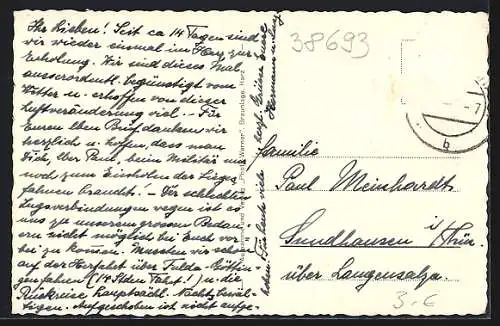 Ihr Lieben! Seit ca 14 Tagen sind
wir wieder einmal im Harz zur
Erholung. Wir sind dieses Mal
ausserordentl. begünstigt vom
Wetter u. erhoffen von dieser
Luftveränderung viel. – Für
Euren lben Brief danken wir
herzlich u. hoffen, dass man
Dich, lber Paul, beim Militär nur
noch zum Einholen der Sieges
fahnen braucht! – Der schlechten
Zugverbindungen wegen ist es
uns zu unserem grossen Bedau
ern nicht möglich bei Euch vor
bei zu kommen. Mussten wir schon
auf der Herfahrt über Fulda-Göttin
gen fahren (14 Stden Fahrt!) u. die
Rückreise hauptsächl. Nachts bewäl-
tigen. Aufgeschoben ist nicht aufge-
hoben. Für heute viele
herzl. Grüsse Eure
Photo "Werner", Braunlage, Harz
38693
b
Familie
Paul Meinhardt
Sundhausen i/Thür.
über Langensalza.
3.-€